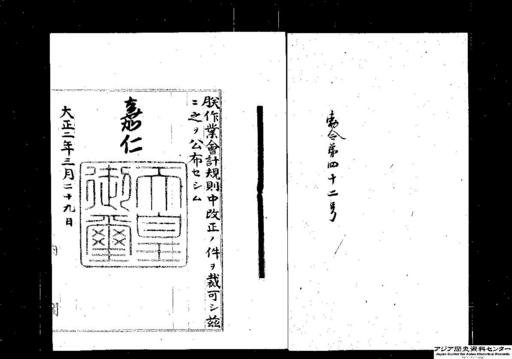 勅令第四十二号
朕作業會計規則中改正ノ件ヲ裁可シ茲
ニ之ヲ公布セシム
嘉仁
天皇
御璽
大正二年三月二十九日
内閣
アジア歴史資料センター
Japan Center for Asian Historical Records